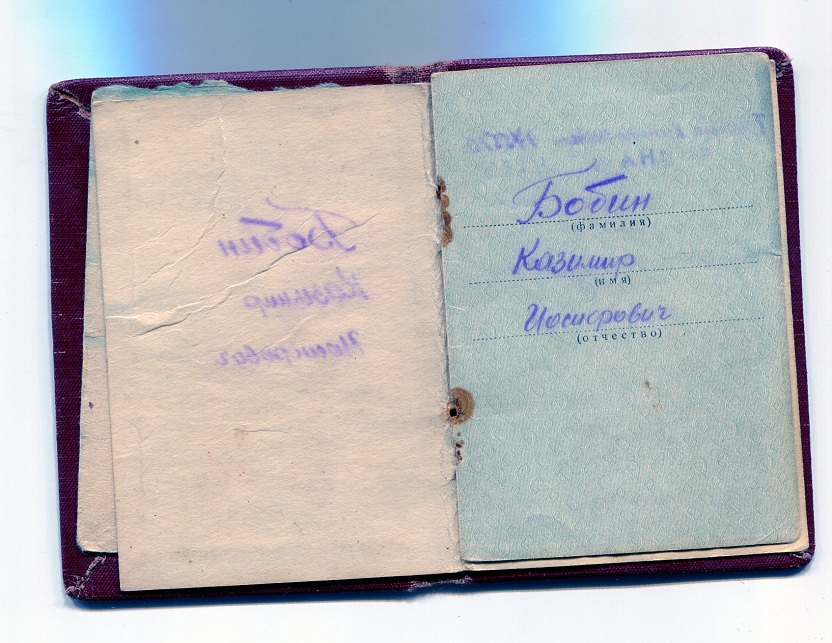 Бобин
(фамилия)
Казимир
(имя)
Иосифович
(отчество)